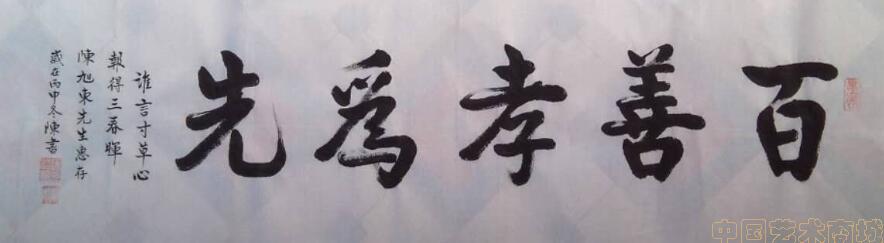 百善孝為先
誰言寸草心
報得三春暉
陳旭東先生惠存
歲在丙申冬陳書
中国艺术商城